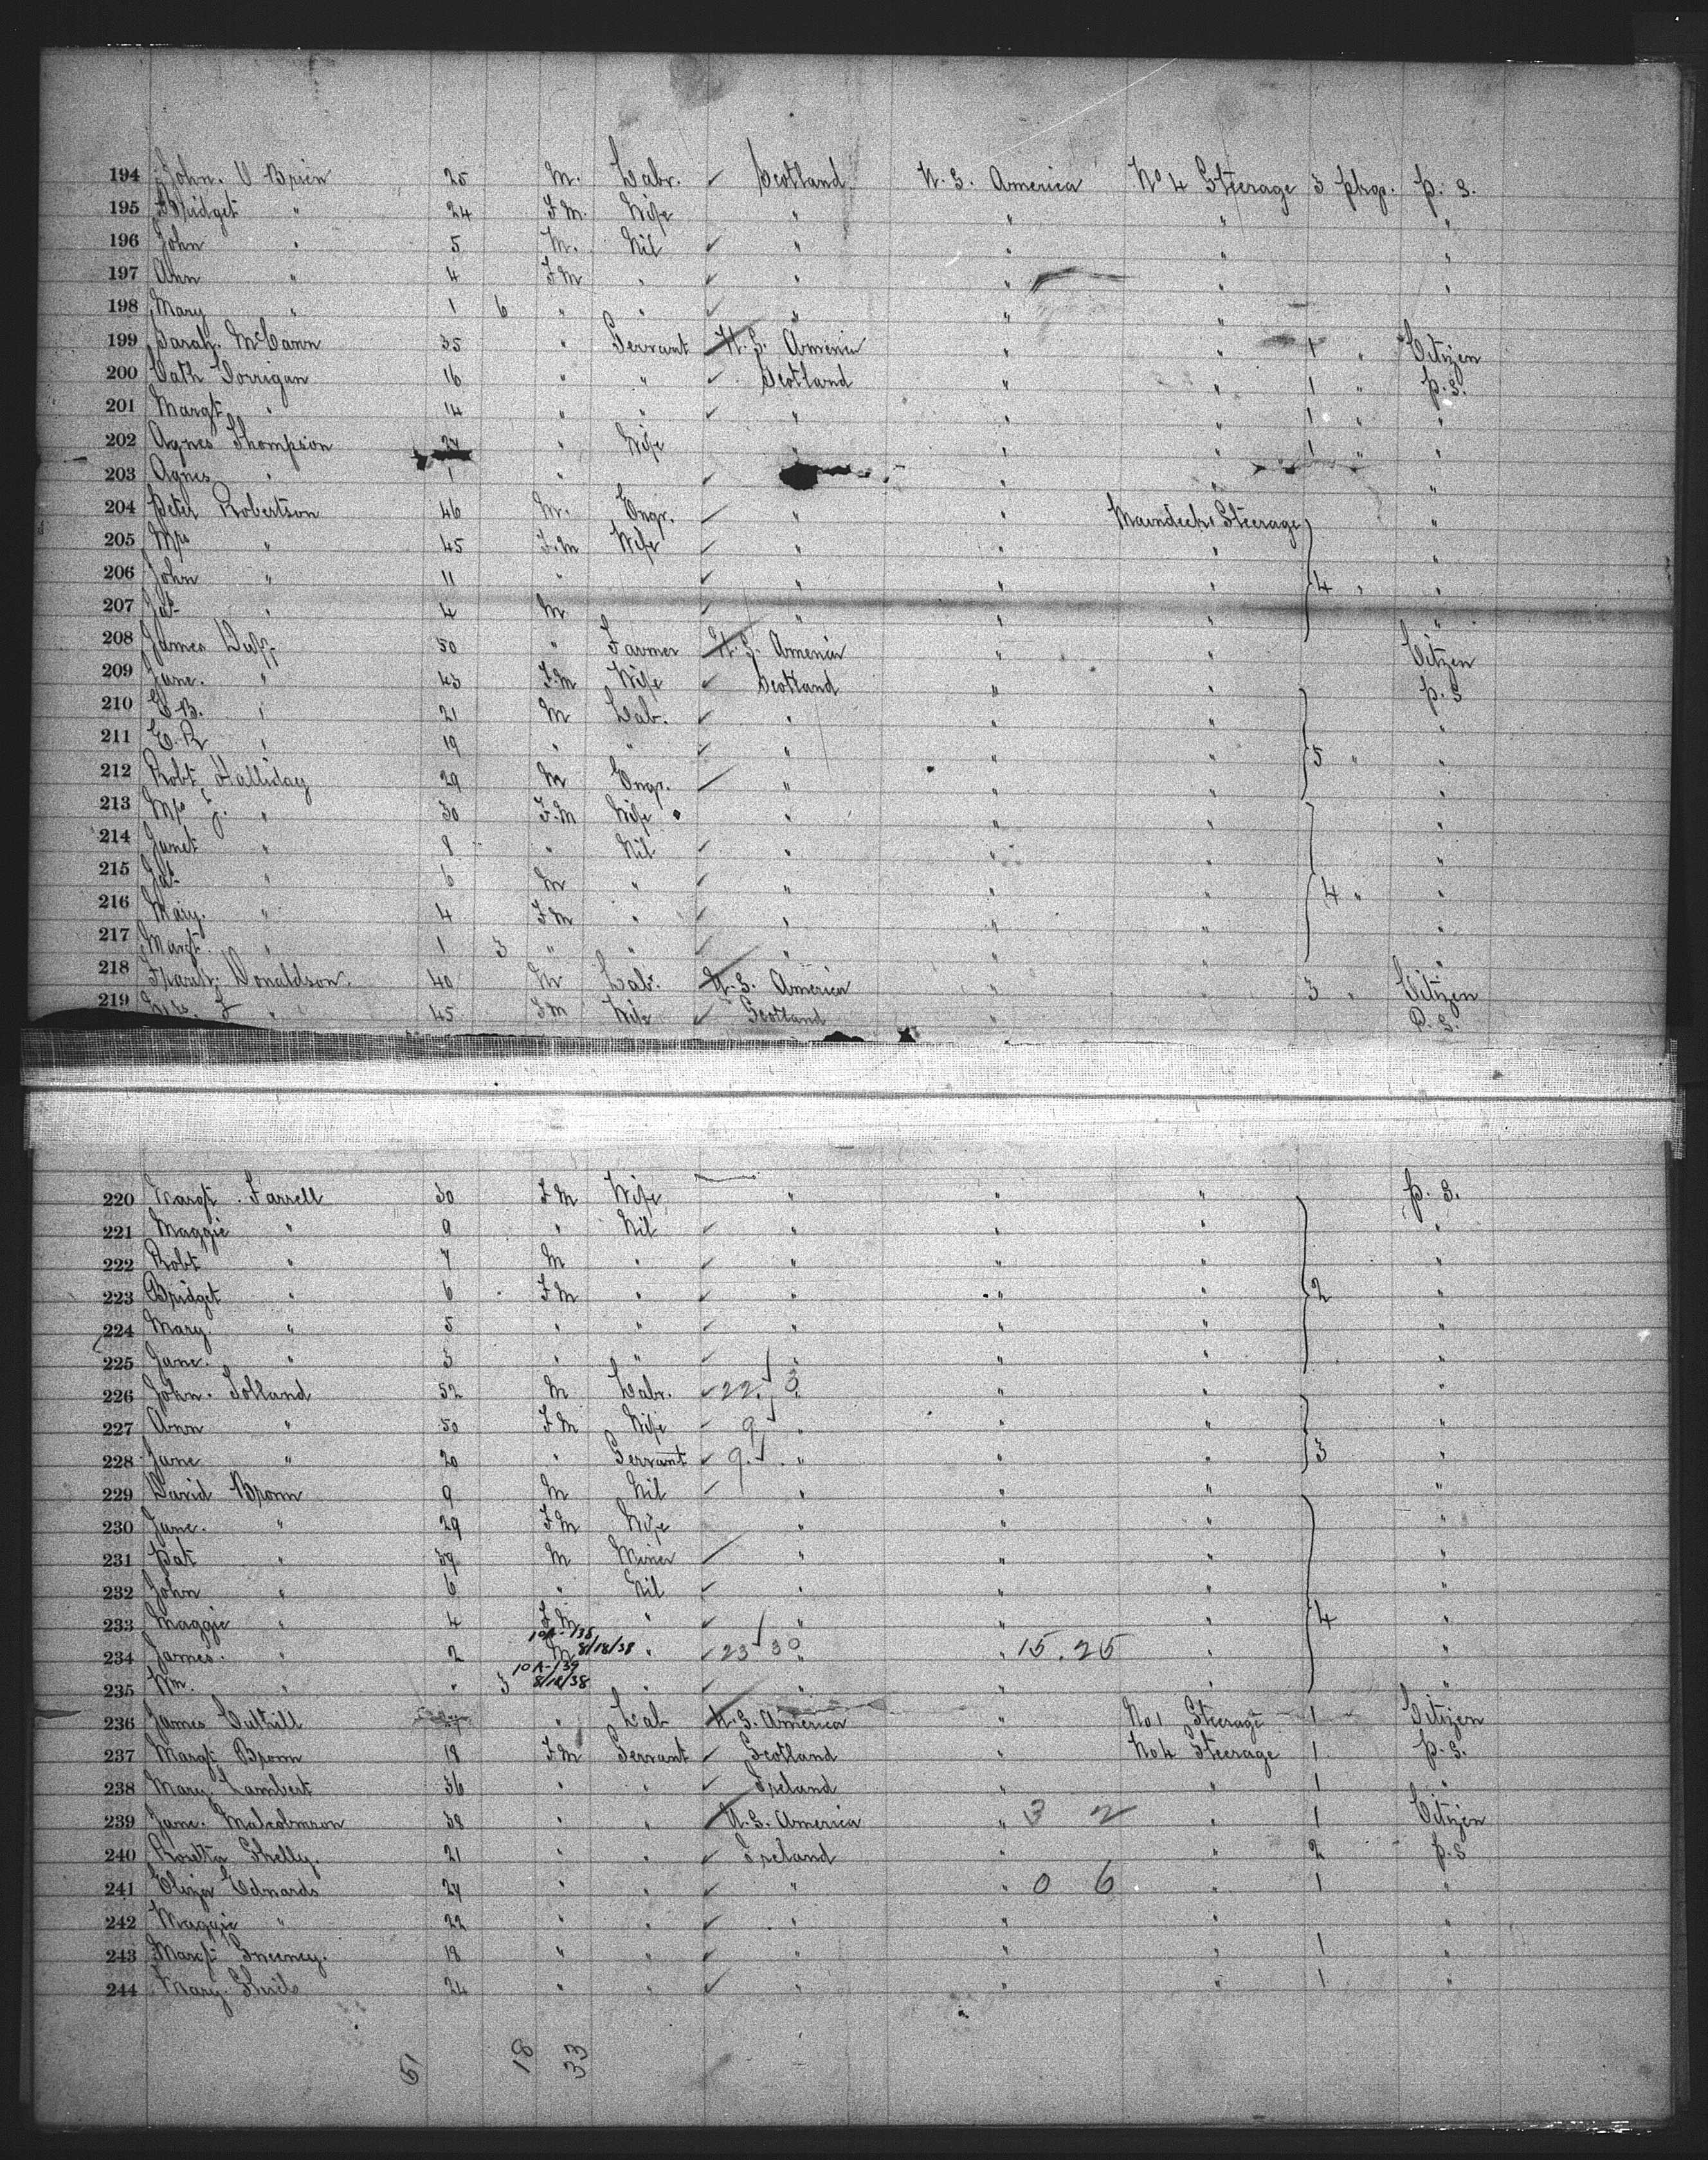 194 John. O Brien 25 M. Labr. ✓ Scotland. U. S. America No 4 Steerage 3 pkgs. P. S.
195 Bridget " 24 F M. Wife " " " "
196 John " 5 M. Nil ✓ " " " "
197 Ann " 4 F M " ✓ " " " "
198 Mary " 1 6 " " ✓ " " " "
199 Sarah. McCann 35 " Servant U. S. America " " 1 " Citizen
200 Cath Corrigan 16 " " ✓ Scotland " " 1 " P. S.
201 Margt " 14 " " ✓ " " " 1 " "
202 Agnes Thompson 24 " Wife " " " 1 " "
203 Agnes " 1 " ✓ " " "
204 Peter Robertson 46 M. Engr. ✓ " " Maindeck Steerage "
205 Mrs " 45 F.M Wife ✓ " " " "
206 John " 11 " ✓ " " " 4 " "
207 Jas " 4 M ✓ " " " "
208 James Duff 50 " Farmer U. S. America " " Citzen
209 Jane. " 43 F.M Wife ✓ Scotland " " P. S
210 E B. " 21 M Lab. ✓ " " " "
211 E. R " 19 " " ✓ " " " 5 " "
212 Robt Halliday 29 M Engr. ✓ " " " "
213 Mrs J. " 30 F.M Wife " " " "
214 Janet " 8 " Nil ✓ " " " "
215 Jas " 6 M " ✓ " " " 4 " "
216 Mary. " 4 F M " ✓ " " " "
217 Margt. " 1 3 " " ✓ " " " "
218 Frank. Donaldson. 40 M Lab. U. S. America " " 3 " Citizen
219 Mrs. F " 45 F M Wife ✓ Scotland " P. S.
220 Margt. Farrell 30 F M Wife " " " P. S.
221 Maggie " 9 " Nil ✓ " " " "
222 Robt " 7 M " ✓ " " " "
223 Bridget " 6 F M " ✓ " " " 2 "
224 Mary. " 5 " " ✓ " " " "
225 Jane. " 3 " " ✓ " " " "
226 John. Tolland 52 M Labr. ✓ 22. 3 " " " "
227 Ann " 50 F M Wife ✓ 9 " " " "
228 Jane " 20 " Servant ✓ 9. " " " 3 "
229 David Brown 9 M Nil ✓ " " " "
230 Jane. " 29 F M Wife " " " "
231 Pat " 39 M Miner ✓ " " " "
232 John " 6 " Nil ✓ " " " "
233 Maggie " 4 F M " ✓ " " " 4 "
10A-138
234 James. " 2 M 8/18/38 " ✓ 23 30 " " 15. 25 " "
10A-139
235 Wm. " " 3 8/18/38 " " " " "
236 James Cuthill " Lab U. S. America No 1 Steerage 1 Citizen
237 Margt Brown 18 F M Servant ✓ Scotland " No 4 Steerage 1 P. S.
238 Mary Lambert 36 " " ✓ Ireland " " 1 "
239 Jane. Malcolmson 38 " " U. S. America " 3 2 " 1 Citzen
240 Rosetta Shelly. 21 " " ✓ Ireland " " 2 P. S
241 Eliza Edwards 24 " " ✓ " " 0 6 " 1 "
242 Maggie " 22 " " ✓ " " " "
243 Margt Sweeney. 18 " " ✓ " " " 1 "
244 Mary. Shiels 24 " " ✓ " " " 1 "
51 18 33